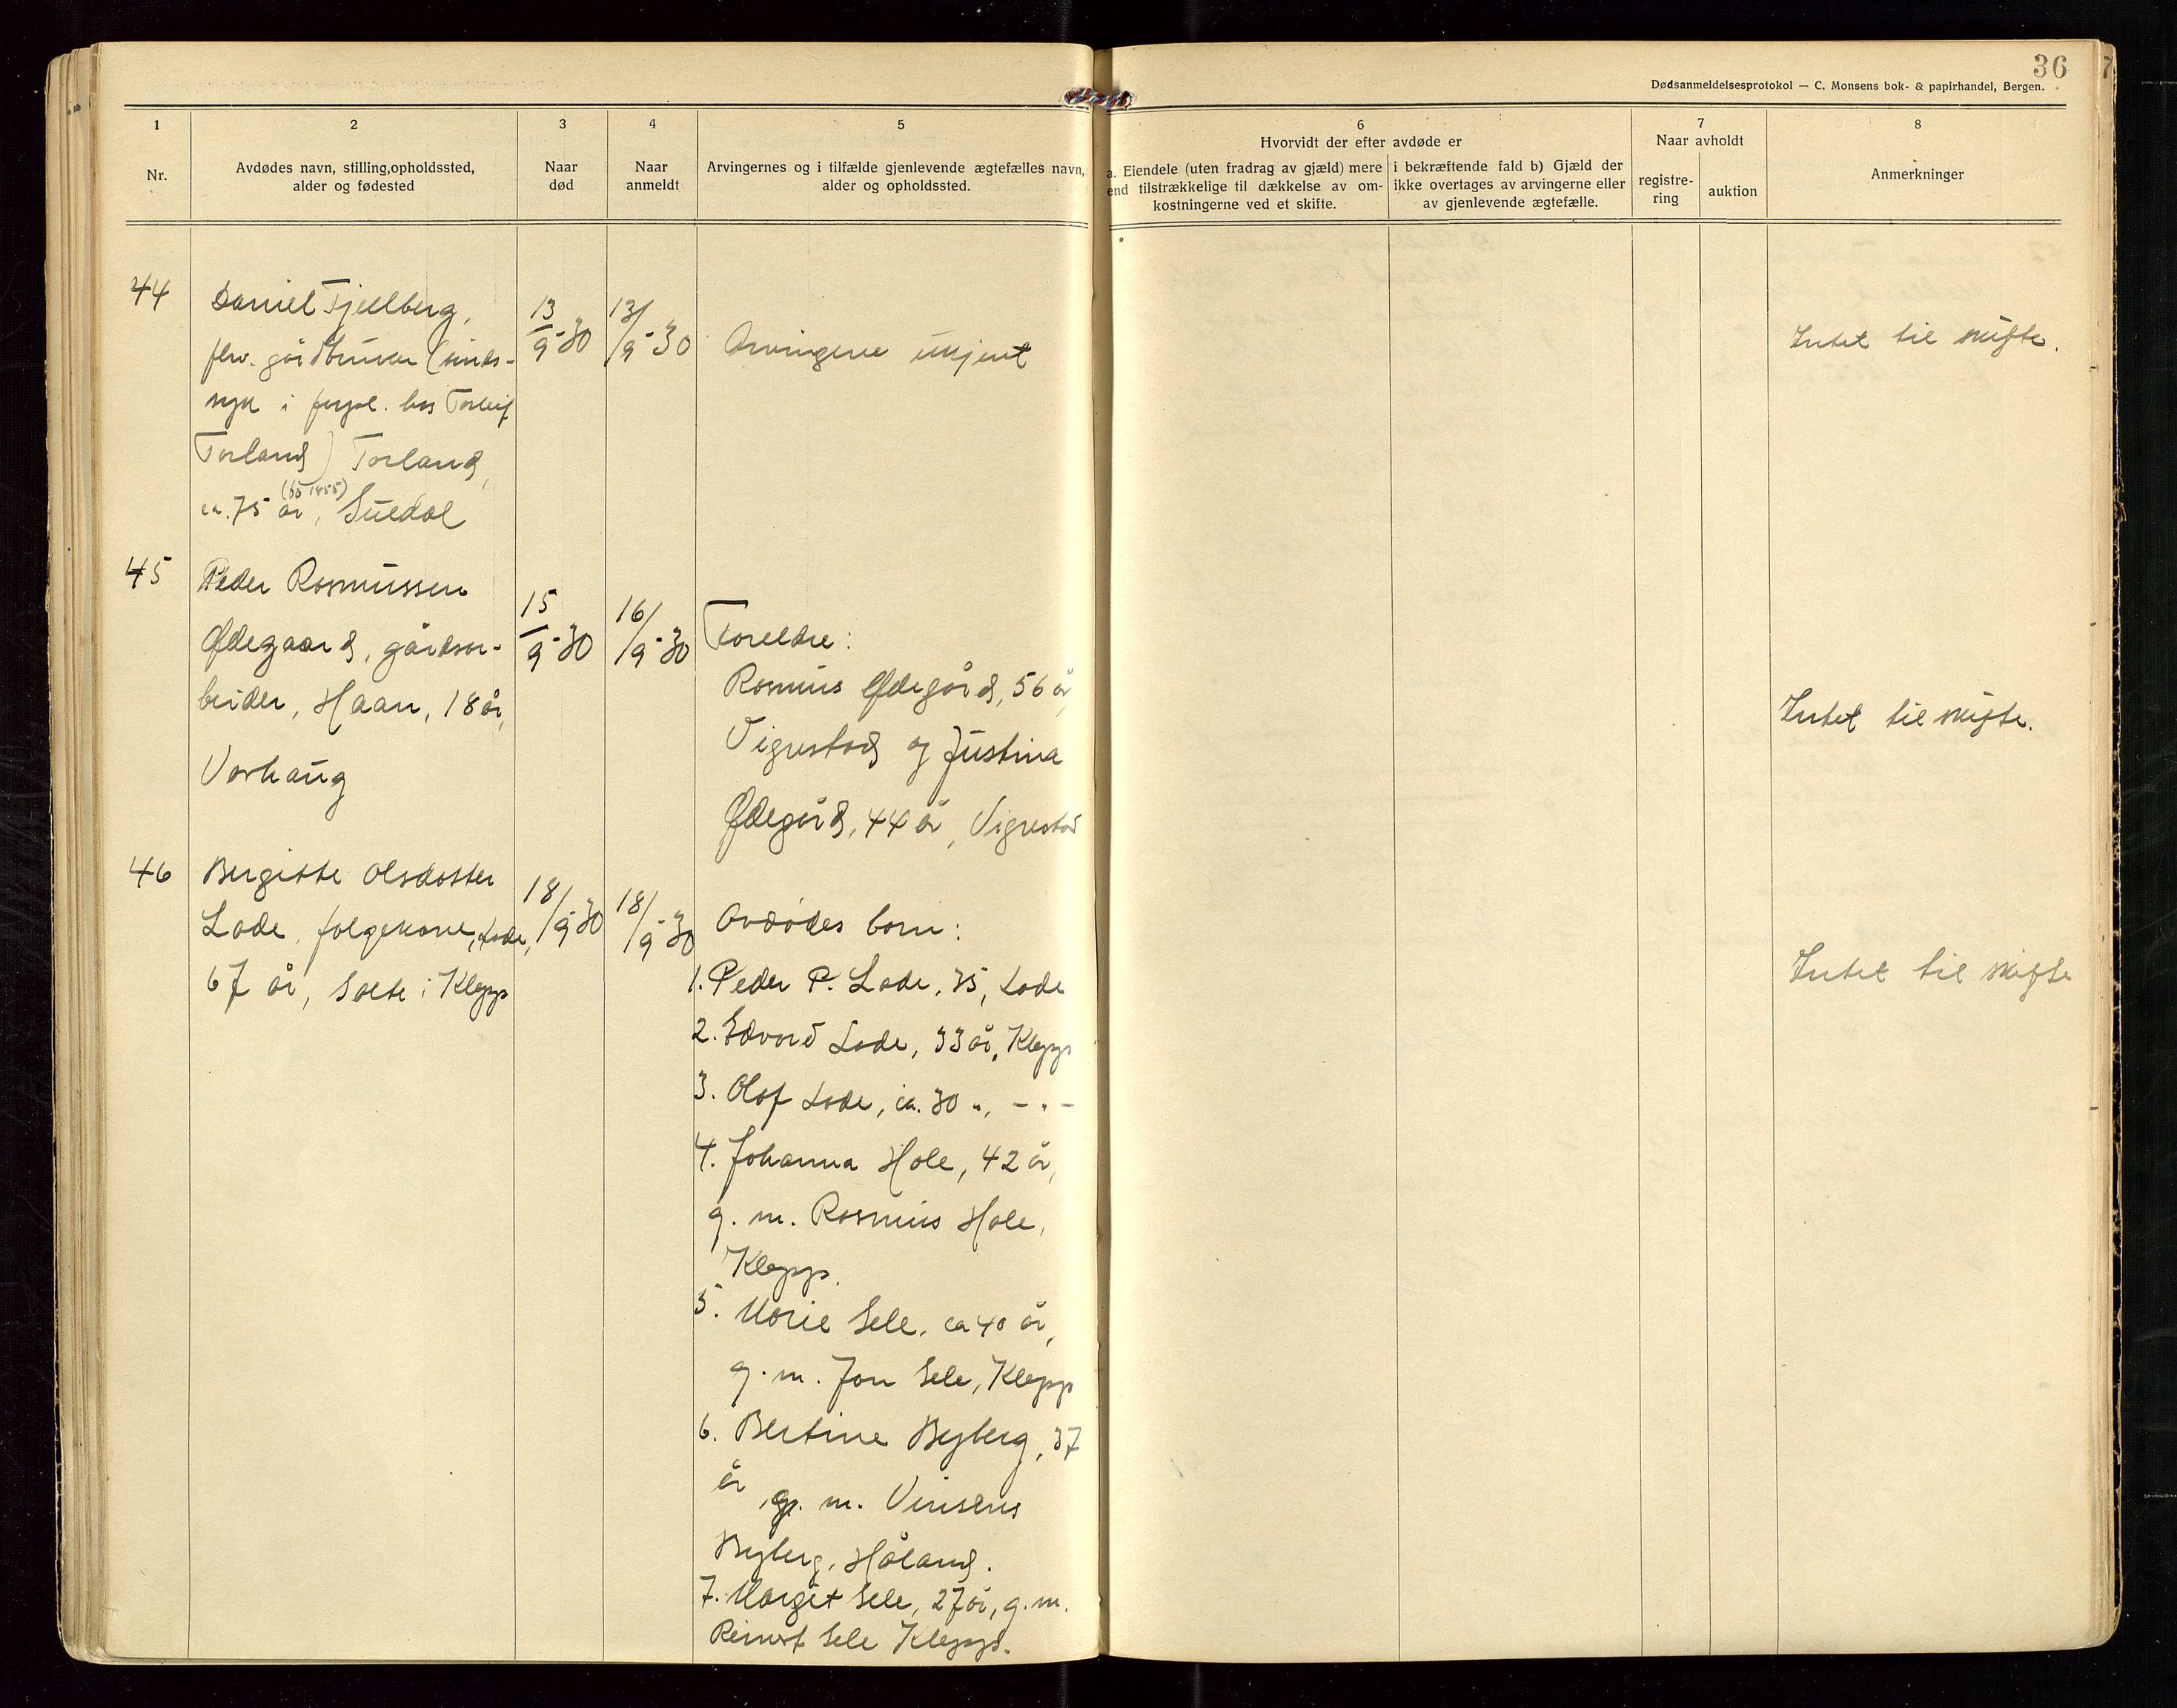 36
Dødsanmeldelsesprotokol — C. Monsens bok- & papirhandel, Bergen.
1
2
3
4
5
6
7
8
Nr.
Avdødes navn, stilling,opholdssted,
alder og fødested
Naar
død
Naar
anmeldt
Arvingernes og i tilfælde gjenlevende ægtefælles navn,
alder og opholdssted.
Hvorvidt der efter avdøde er
a. Eiendele (uten fradrag av gjæld) mere
end tilstrækkelige til dækkelse av om-
kostningerne ved et skifte.
i bekræftende fald b) Gjæld der
ikke overtages av arvingerne eller
av gjenlevende ægtefælle.
Naar avholdt
registre-
ring
auktion
Anmerkninger
44
Daniel Fjellberg,
fhv. gårdbruker (sinds-
syk i forpl. hos Torleif
Torland) Torland,
(fø 1855)
ca. 75 år, Suldal
13/9-30
13/9-30
Arvingene ukjent
Intet til skifte.
45
Peder Rasmussen
Ødegaard, gårdsar-
beider, Haar, 18 år,
Varhaug
15/9-30
16/9-30
Foreldre:
Rasmus Ødegård, 56 år,
Vigrestad og Justina
Ødegård, 44 år, Vigrestad
Intet til skifte.
46
Bergitte Olsdatter
Lode, folgekone, Lode,
67 år, Salte i Klepp
18/9-30
18/9-30
Avdødes born:
1. Peder P. Lode, 35, Lode
2. Edvard Lode, 33 år, Klepp
3. Olaf Lode, ca. 30 ", - " -
4. Johanna Hole, 42 år,
g. m. Rasmus Hole,
Klepp.
5. Marie Sele, ca 40 år,
g. m. Jon Sele, Klepp
6. Bertine Byberg, 37
år, g. m. Vinsens
Byberg, Håland.
7. Marget Sele, 27 år, g. m.
Reinert Sele Klepp.
Intet til skifte